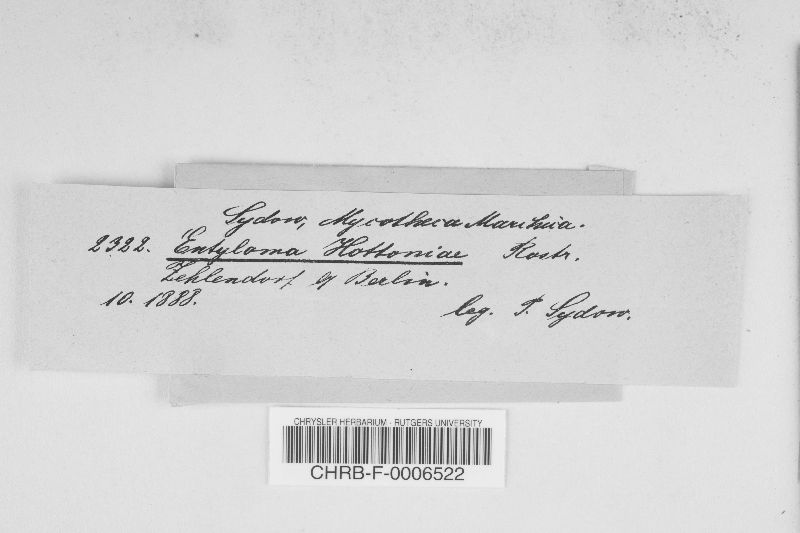 Sydow, Mycotheca Marchica.
2322. Entyloma Hottoniae Rostr.
Zehlendorf b/ Berlin.
10. 1888.
leg. P. Sydow.
CHRYSLER HERBARIUM - RUTGERS UNIVERSITY
CHRB-F-0006522